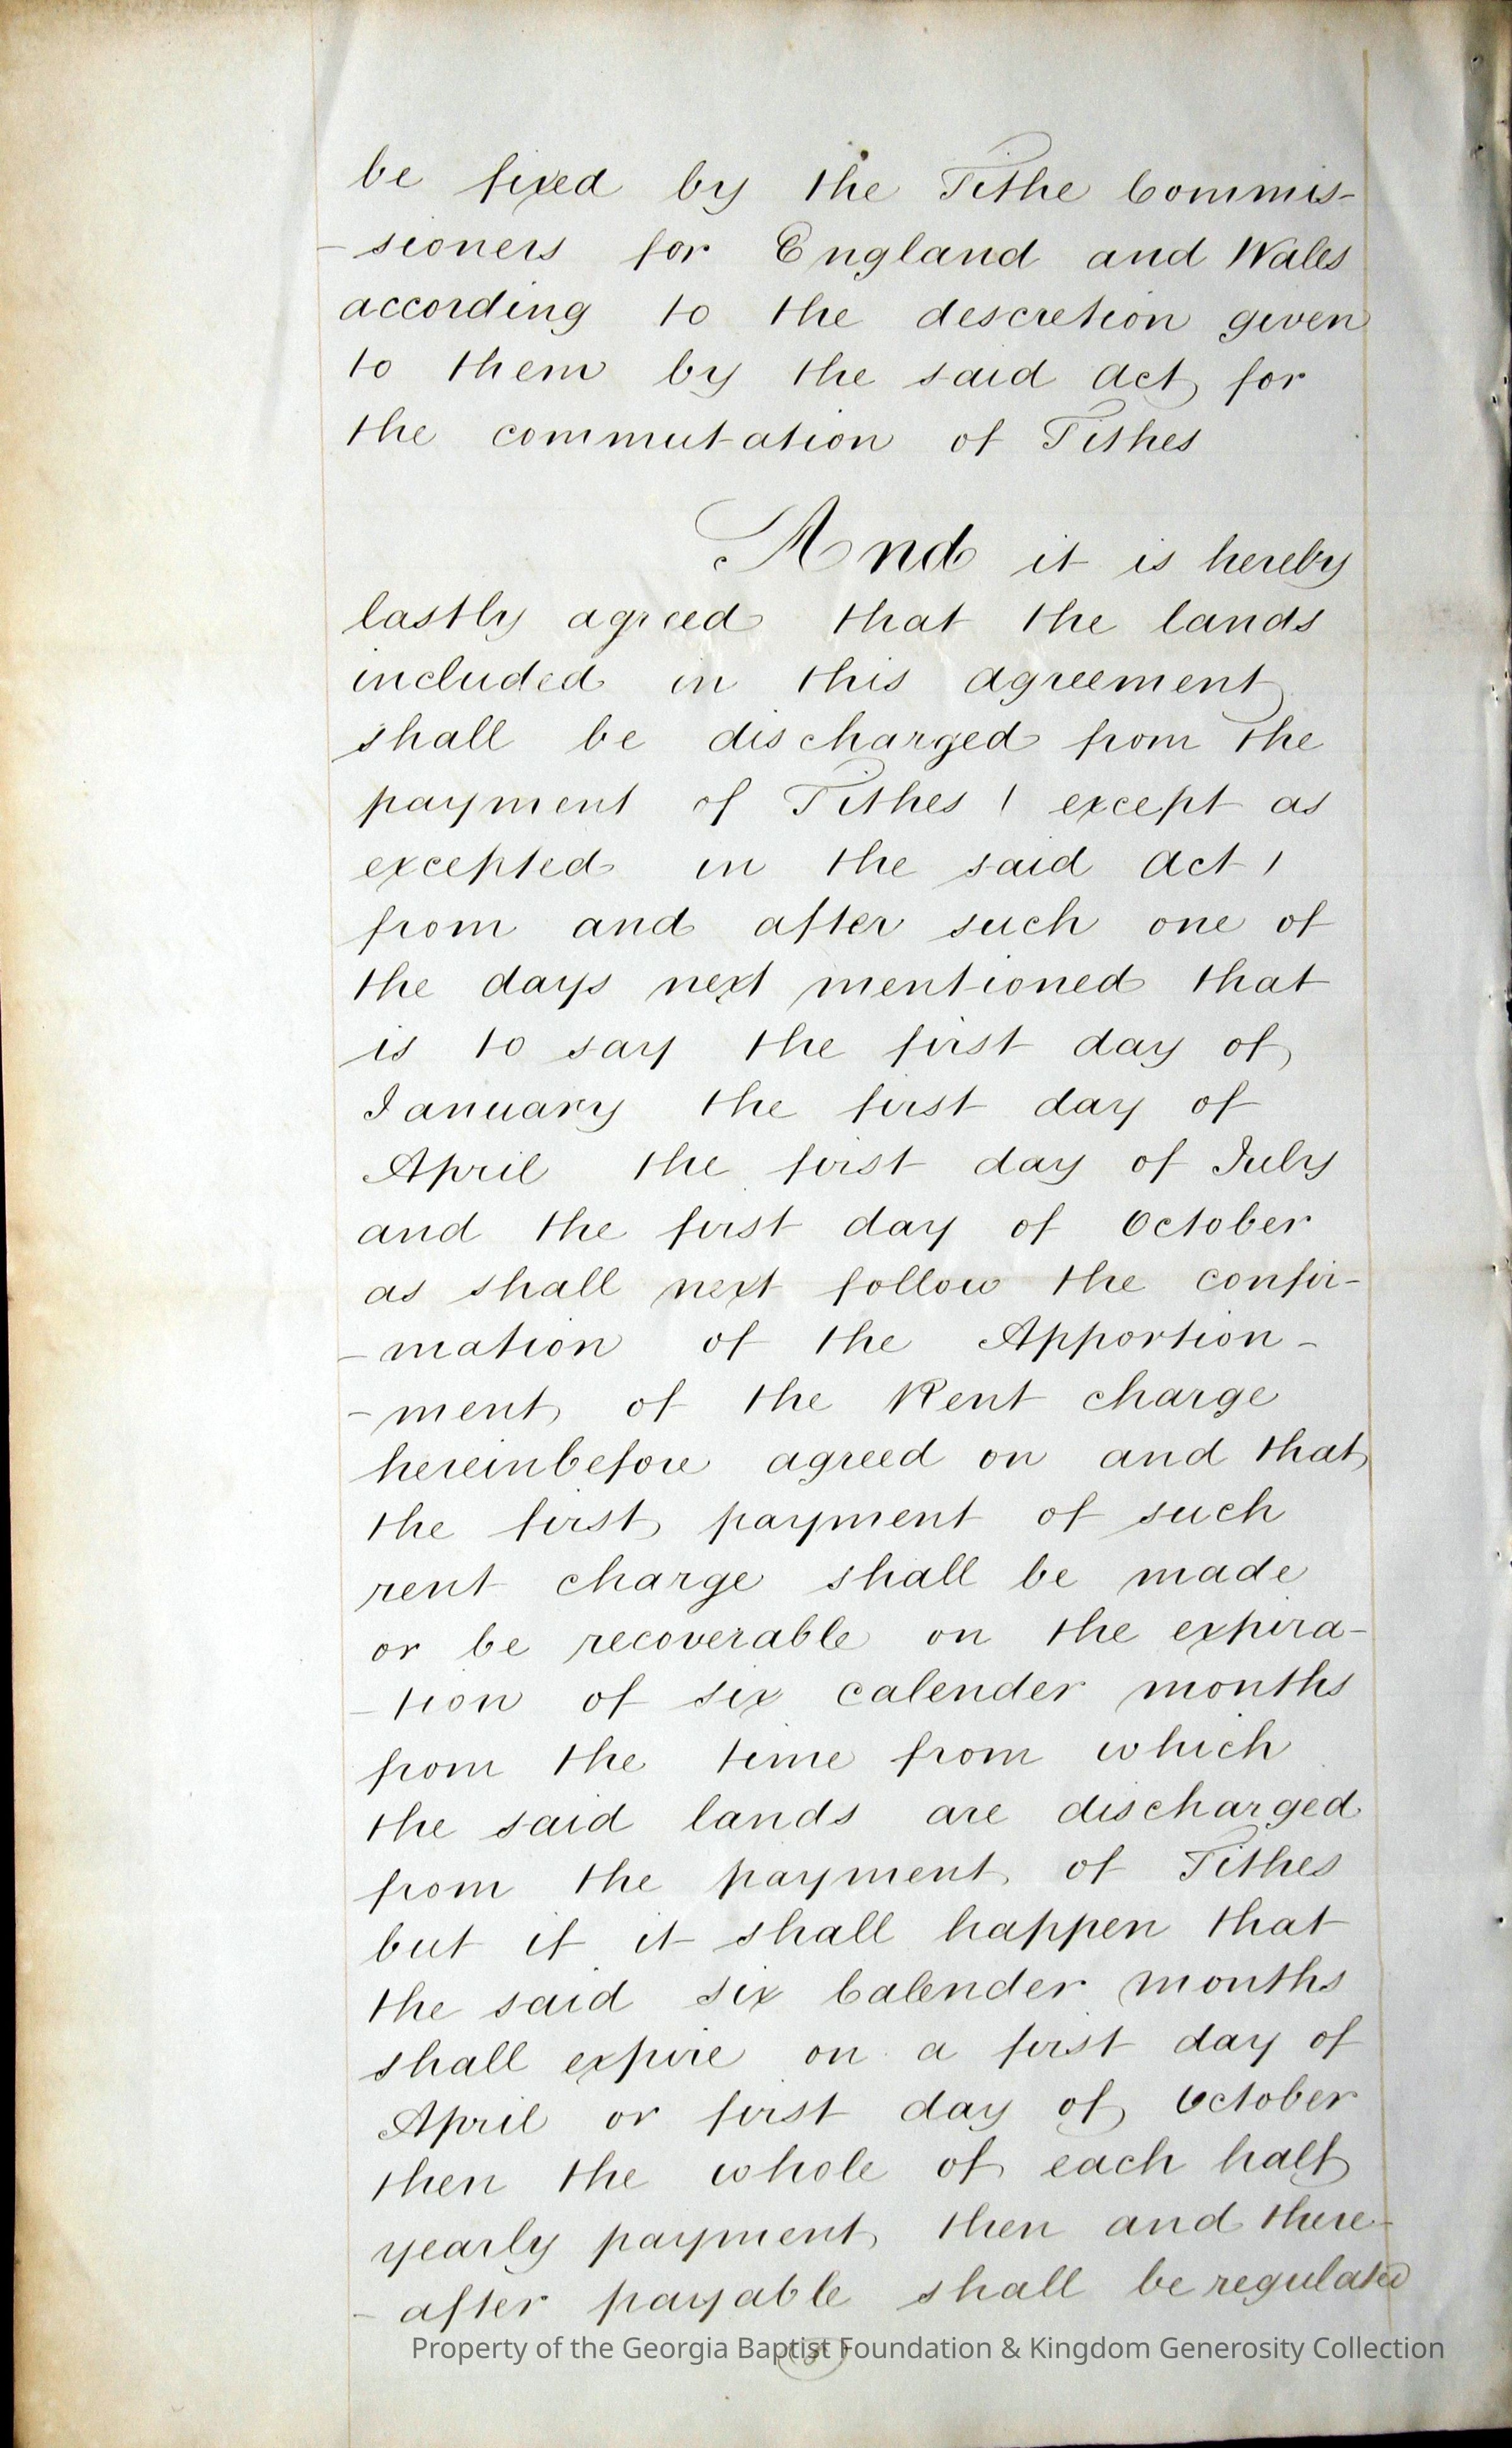 be fixed by the Tithe Commis-
-sioners for England and Wales
according to the descretion given
to them by the said Act for
the commutation of Tithes
And it is hereby
lastly agreed that the lands
included in this agreement
shall be discharged from the
payment of Tithes ( except as
excepted in the said Act )
from and after such one of
the days next mentioned that
is to say the first day of
January the first day of
April the first day of July
and the first day of October
as shall next follow the confir-
-mation of the Apportion-
-ment of the Rent charge
hereinbefore agreed on and that
the first payment of such
rent charge shall be made
or be recoverable on the expira-
-tion of six calender months
from the time from which
the said lands are discharged
from the payment of Tithes
but if it shall happen that
the said six Calender months
shall expire on a first day of
April or first day of October
then the whole of each half
yearly payment then and there-
-after payable shall be regulated
Property of the Georgia Baptist Foundation & Kingdom Generosity Collection